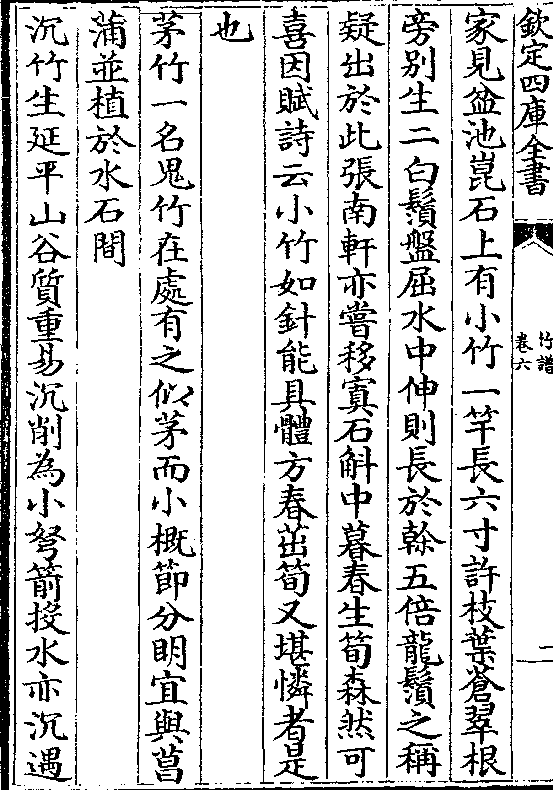 欽定四庫全書
竹譜
卷六
二
家見盆池崑石上有小竹一竿長六寸許枝葉蒼翠根
旁别生二白鬚盤屈水中伸則長於榦五倍龍鬚之稱
疑出於此張南軒亦嘗移寘石斛中暮春生筍森然可
喜因賦詩云小竹如針能具體方春茁筍又堪憐者是
也
茅竹一名鬼竹在處有之似茅而小概節分明宜與菖
蒲並植於水石間
沉竹生延平山谷質重易沉削為小弩箭投水亦沉遇